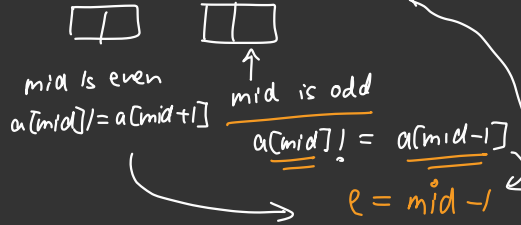 mid is even
a[mid]!=a[mid+1]
mid is odd
a[mid]! = a[mid-1]
e = mid -1